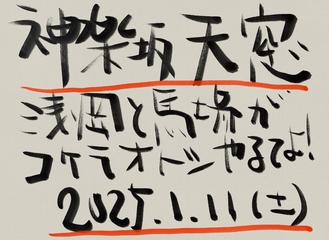 神楽坂天窓
浅岡と馬場が
コケラオトシやるてよ!
2025.1.11(土)